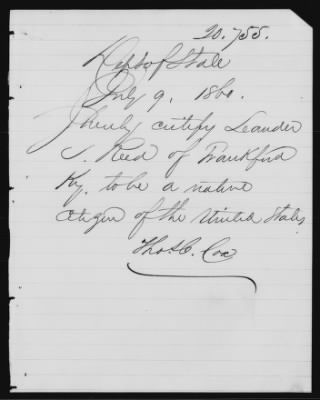 20.755.
Dept of State
July 9, 1860.
I hereby certify Leander
J. Reed of Frankford
Ky. to be a native
citizen of the United States,
Thos. C. Cox